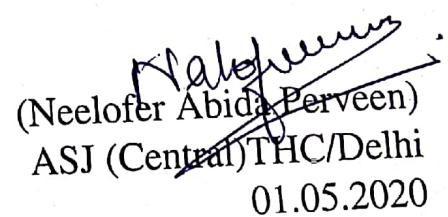 (Neelofer Abida Perveen)
ASJ (Central)THC/Delhi
01.05.2020